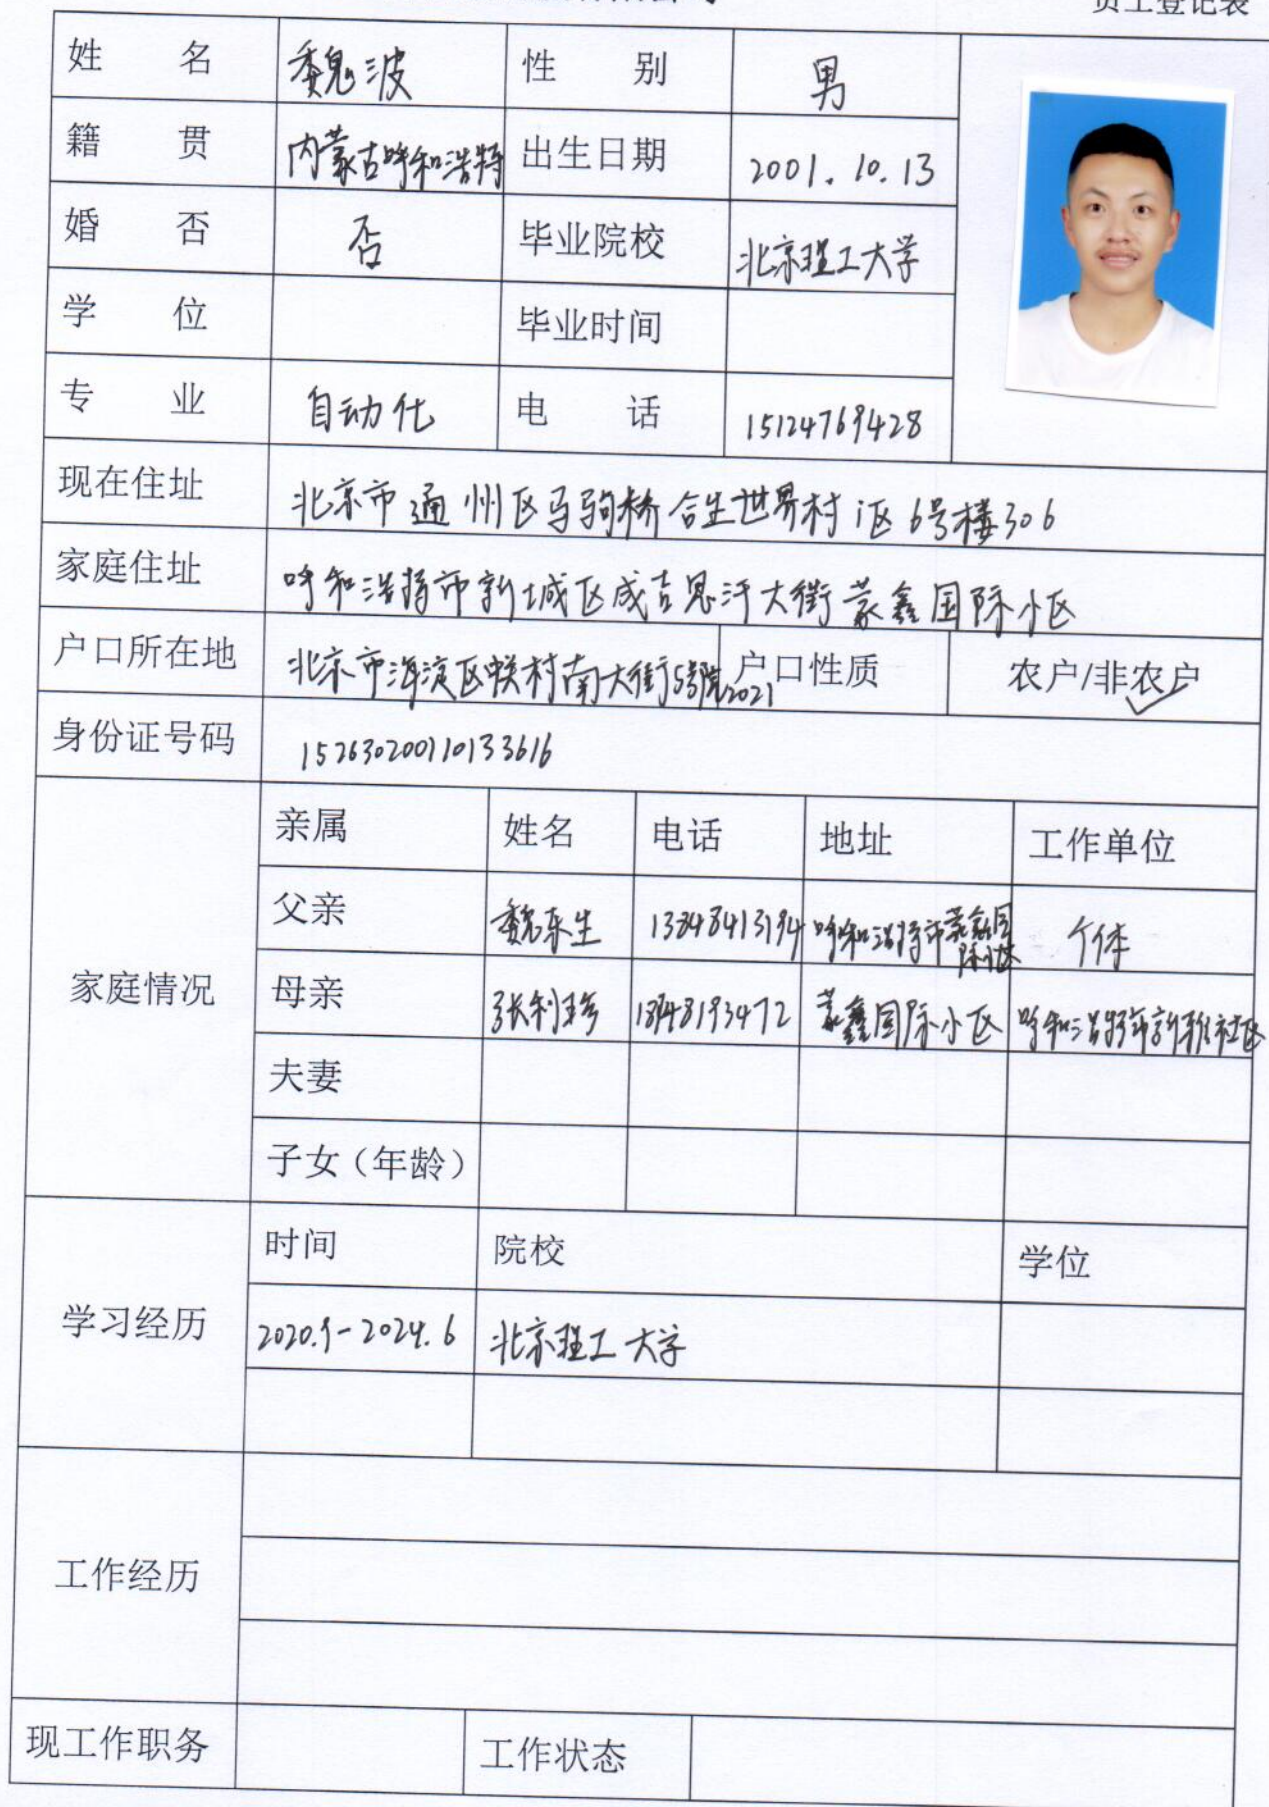 员工登记表
姓名 魏波 性别 男
籍贯 内蒙古呼和浩特 出生日期 2001.10.13
婚否 否 毕业院校 北京理工大学
学位 毕业时间
专业 自动化 电话 15124769428
现在住址 北京市通州区马驹桥合生世界村i区6号楼306
家庭住址 呼和浩特市新城区成吉思汗大街蒙鑫国际小区
户口所在地 北京市海淀区中关村南大街5号院2021 户口性质 农户/非农户
身份证号码 152630200110133616
家庭情况 亲属 姓名 电话 地址 工作单位
父亲 魏东生 呼和浩特市蒙鑫国际小区 个体
母亲 张利珍 蒙鑫国际小区 呼和浩特市
夫妻
子女(年龄)
学习经历 时间 院校 学位
2020.9-2024.6 北京理工大学
工作经历
现工作职务 工作状态